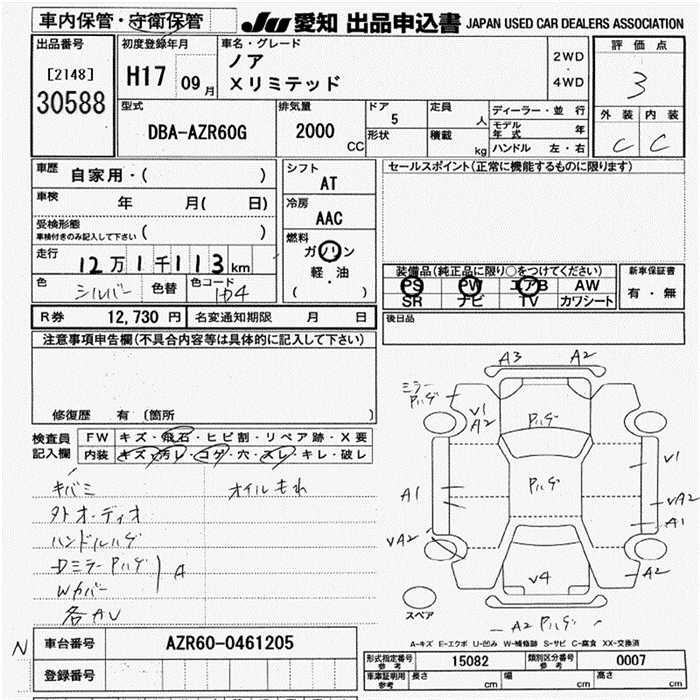 車内保管・守衛保管
JU 愛知 出品申込書 JAPAN USED CAR DEALERS ASSOCIATION
出品番号
[2148]
30588
初度登録年月
H17 09月
車名・グレード
ノア
Xリミテッド
2WD
・
4WD
評価点
3
外装 内装
C C
型式
DBA-AZR60G
排気量
2000 CC
ドア
5
形状
定員
人
積載
kg
ディーラー・並行
モデル年式 年
ハンドル 左・右
車歴
自家用・( )
車検
年 月( 日)
受検形態
車検付きのみ記入して下さい ( )
走行
12万1千113km
色
シルバー
色替
色コード
1D4
シフト
AT
冷房
AAC
燃料
ガソリン
軽・油
( )
セールスポイント(正常に機能するものに限ります)
装備品(純正品に限り○をつけてください)
PS PW エアB AW
SR ナビ TV カワシート
新車保証書
有・無
R券 12,730円 名変通知期限 月 日
後日品
注意事項申告欄(不具合内容等は具体的に記入して下さい)
修復歴 有 (箇所 )
検査員
記入欄
FW キズ・飛石・ヒビ割・リペア跡・X要
内装 キズ・汚レ・コゲ・穴・スレ・キレ・破レ
キバミ
オイルもれ
外オーディオ
ハンドルハゲ
DミラーPハゲ
Wカバー
A
各AU
A3 A2
ミラー
Pハゲ
V1
A2
Pハゲ
V1
A1
Pハゲ
VA2
A1
VA2
V4
A2
スペア
A2 Pハゲ
A-キズ E-エクボ U-凹み W-補修跡 S-サビ C-腐食 XX-交換済
N
車台番号 AZR60-0461205
登録番号
形式指定番号 参考 15082 類別区分番号 参考 0007
車庫証明用 参考 長さ cm 幅 cm 高さ cm